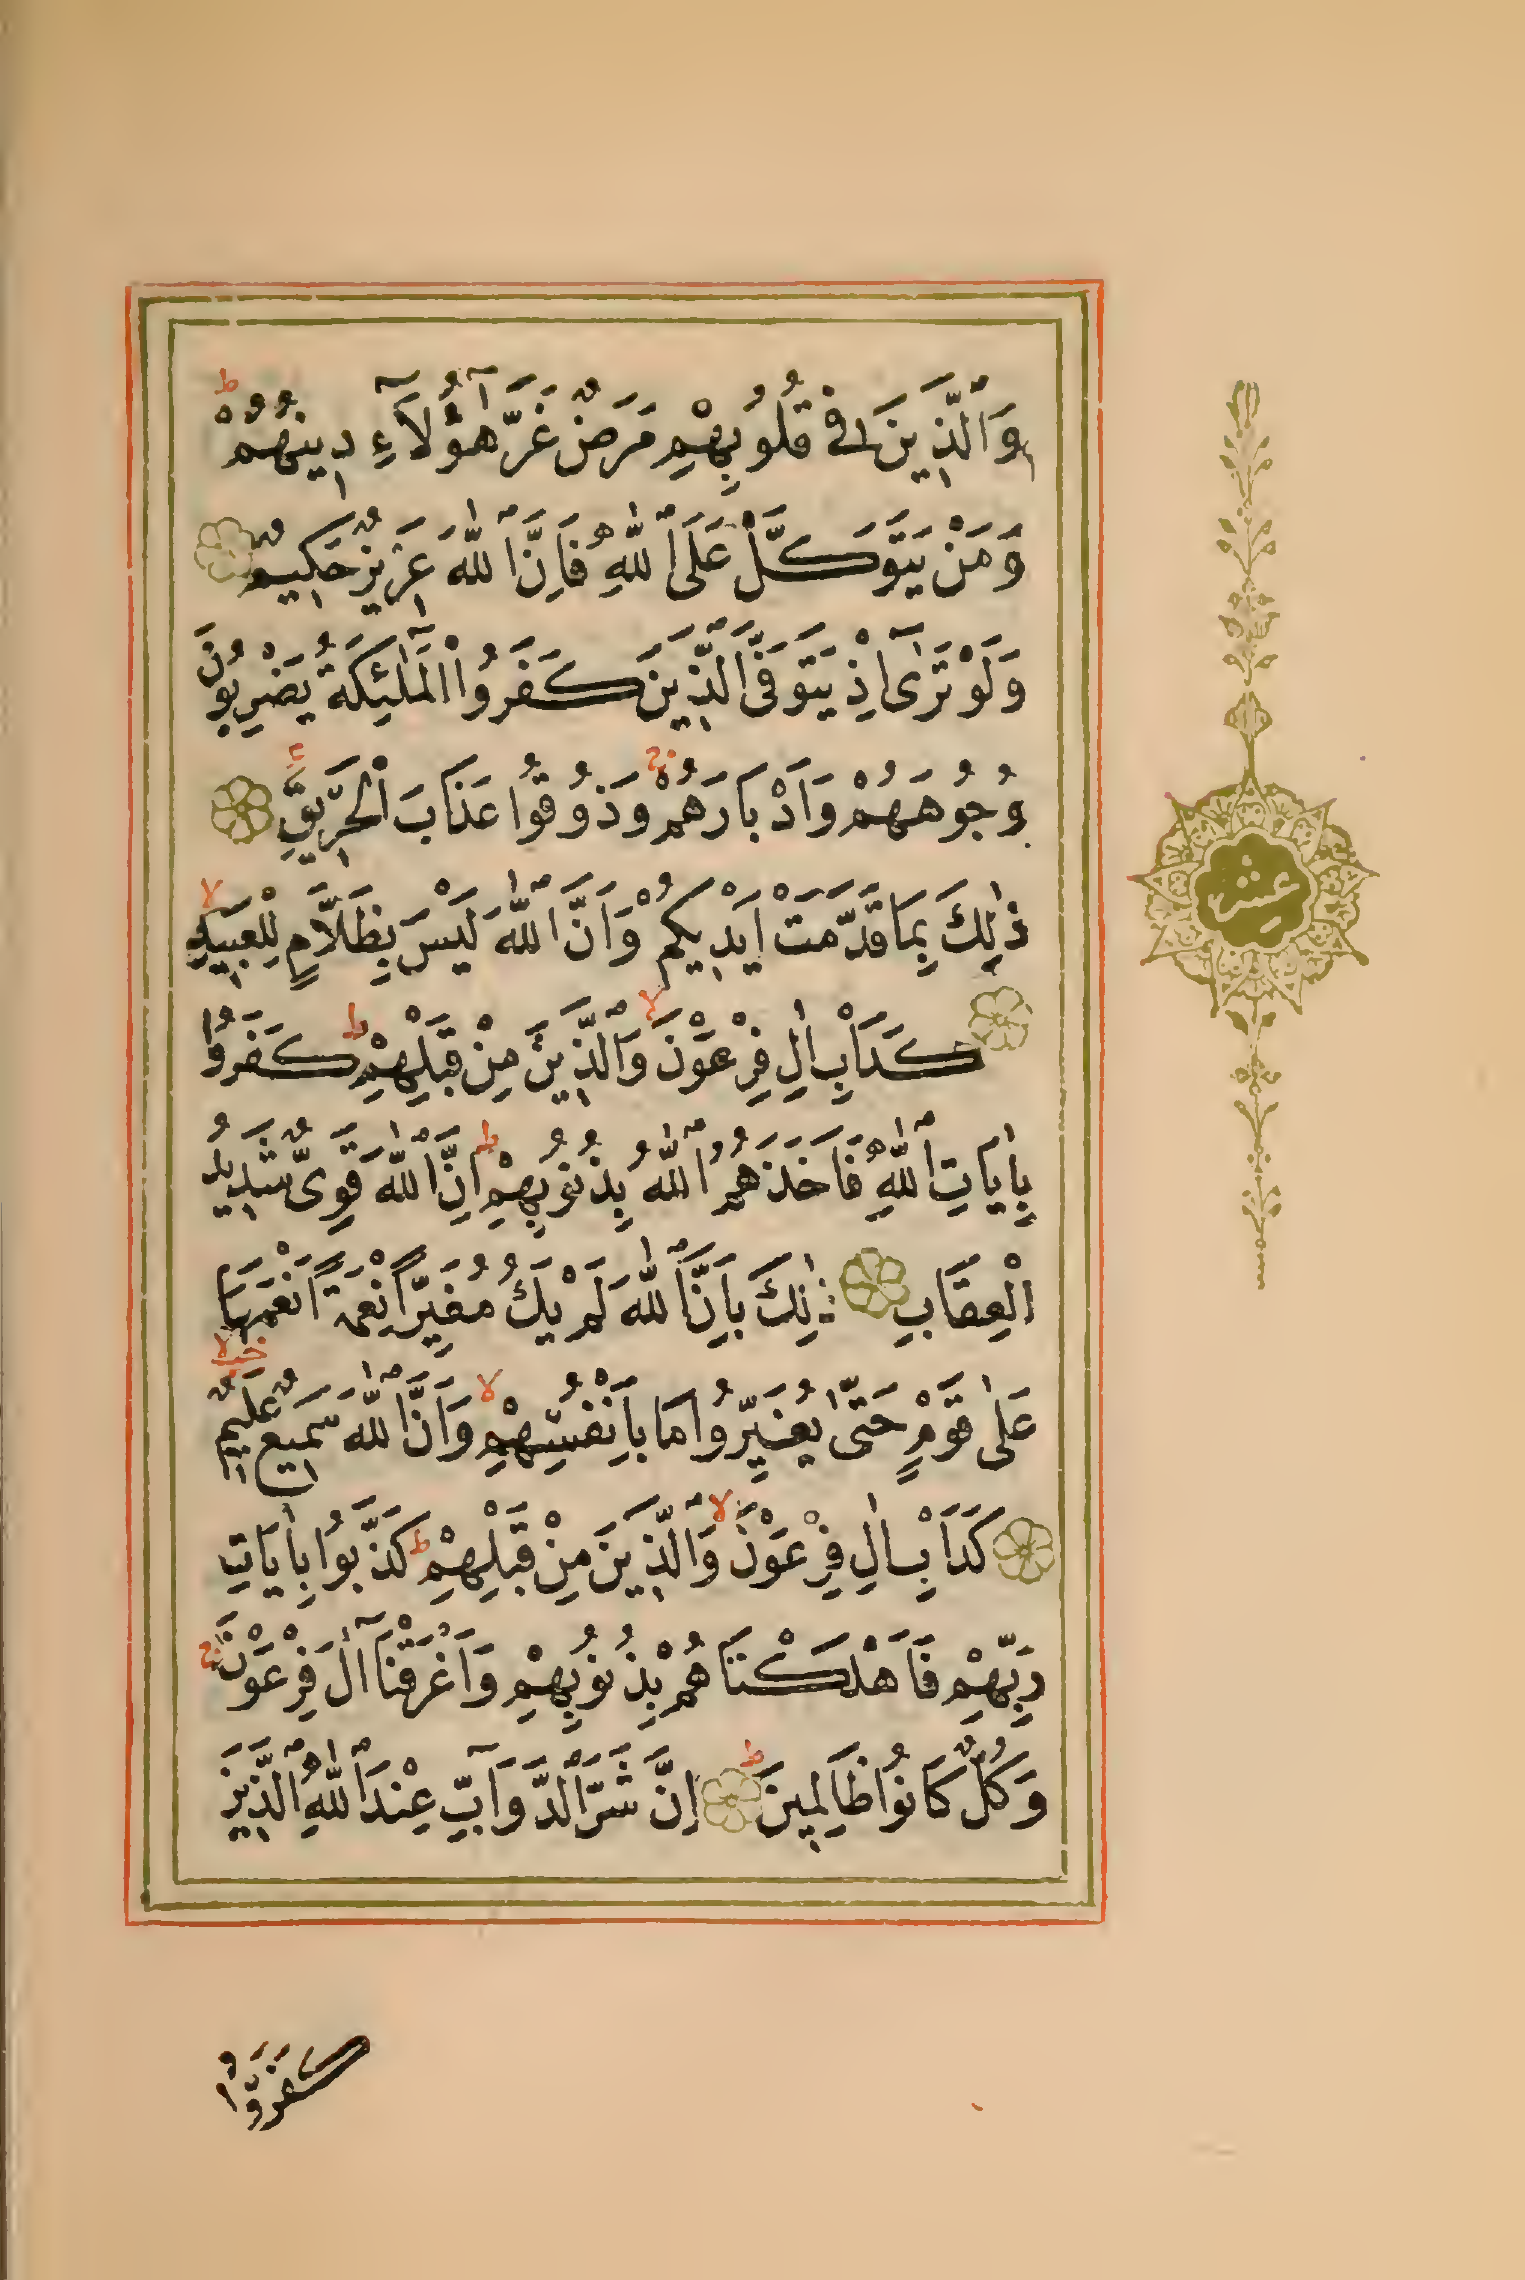 وَالَّذِينَ فِي قُلُوبِهِمْ مَرَضٌ غَرَّ هٰٓؤُلَآءِ دِينُهُمْ ط
وَمَنْ يَتَوَكَّلْ عَلَى اللّٰهِ فَاِنَّ اللّٰهَ عَزِيزٌ حَكِيمٌ
وَلَوْ تَرٰٓى اِذْ يَتَوَفَّى الَّذِينَ كَفَرُوا الْمَلٰٓئِكَةُ يَضْرِبُونَ
وُجُوهَهُمْ وَاَدْبَارَهُمْ ج وَذُوقُوا عَذَابَ الْحَرِيقِ
ذٰلِكَ بِمَا قَدَّمَتْ اَيْدِيكُمْ وَاَنَّ اللّٰهَ لَيْسَ بِظَلَّامٍ لِلْعَبِيدِ لا
كَدَاْبِ اٰلِ فِرْعَوْنَ لا وَالَّذِينَ مِنْ قَبْلِهِمْ ط كَفَرُوا
بِاٰيَاتِ اللّٰهِ فَاَخَذَهُمُ اللّٰهُ بِذُنُوبِهِمْ ط اِنَّ اللّٰهَ قَوِيٌّ شَدِيدُ
الْعِقَابِ ذٰلِكَ بِاَنَّ اللّٰهَ لَمْ يَكُ مُغَيِّرًا نِعْمَةً اَنْعَمَهَا
عَلٰى قَوْمٍ حَتّٰى يُغَيِّرُوا مَا بِاَنْفُسِهِمْ لا وَاَنَّ اللّٰهَ سَمِيعٌ عَلِيمٌ لا
كَدَاْبِ اٰلِ فِرْعَوْنَ لا وَالَّذِينَ مِنْ قَبْلِهِمْ ط كَذَّبُوا بِاٰيَاتِ
رَبِّهِمْ فَاَهْلَكْنَاهُمْ بِذُنُوبِهِمْ وَاَغْرَقْنَٓا اٰلَ فِرْعَوْنَ ج
وَكُلٌّ كَانُوا ظَالِمِينَ ط اِنَّ شَرَّ الدَّوَآبِّ عِنْدَ اللّٰهِ الَّذِينَ
كَفَرُوا
عشر